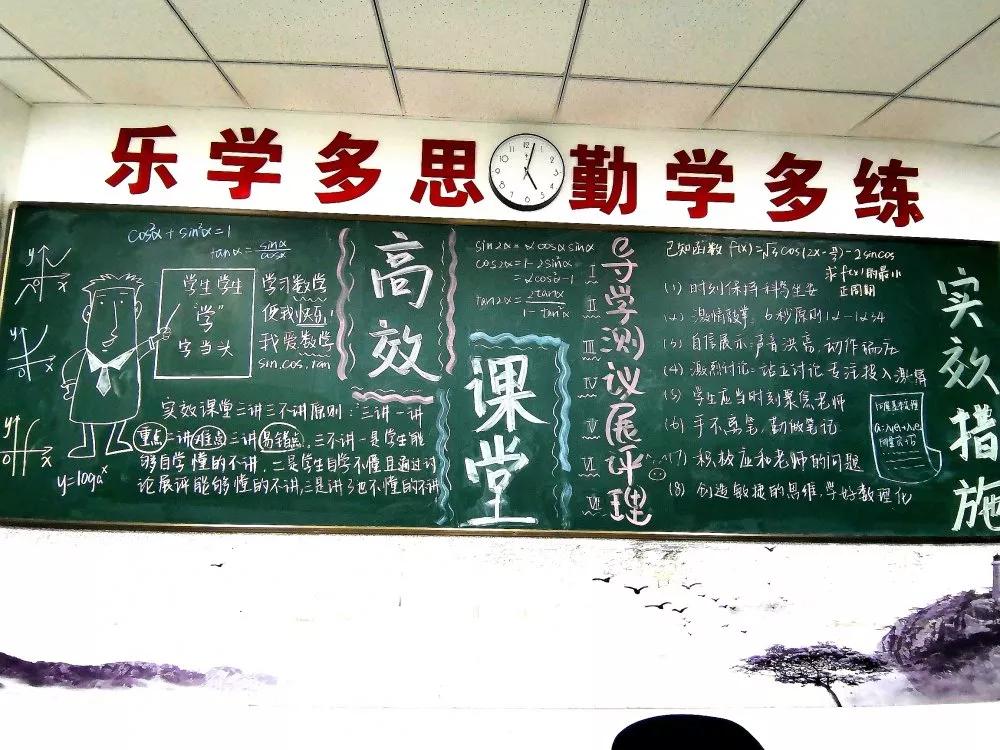 乐学多思 勤学多练
12
1
2
3
4
5
6
7
8
9
10
11
cos²α + sin²α = 1
tanα = sinα/cosα
y
x
y
x
y
0
x
y=logaˣ
学生学生
"学"
字当头
学习数学
使我快乐!
我爱数学
sin.cos.tan
实效课堂三讲三不讲原则：三讲一讲
重点二讲难点三讲易错点，三不讲一是学生能
够自学懂的不讲，二是学生自学不懂且通过讨
论展评能够懂的不讲，三是讲了也不懂的不讲
高效
课堂
sin2α = 2cosαsinα
cos2α = 1-2sin²α
= 2cos²α-1
tan2α = 2tanα/1-tan²α
I
II
III
IV
V
VI
VII
导学测议展评理
已知函数 f(x)=√3cos(2x-π/3)-2sincos
求f(x)的最小
正周期
(1) 时刻保持
(2) 激情
6秒原则
(3) 自信展示：声音洪亮，动作
(4) 激烈讨论：站立讨论 专注投入 激情
(5) 学生应当时刻聚焦老师
(6) 手不离笔，勤做笔记
(7) 积极应和老师的问题
(8) 创造敏捷的思维，学好数理化
实效措施